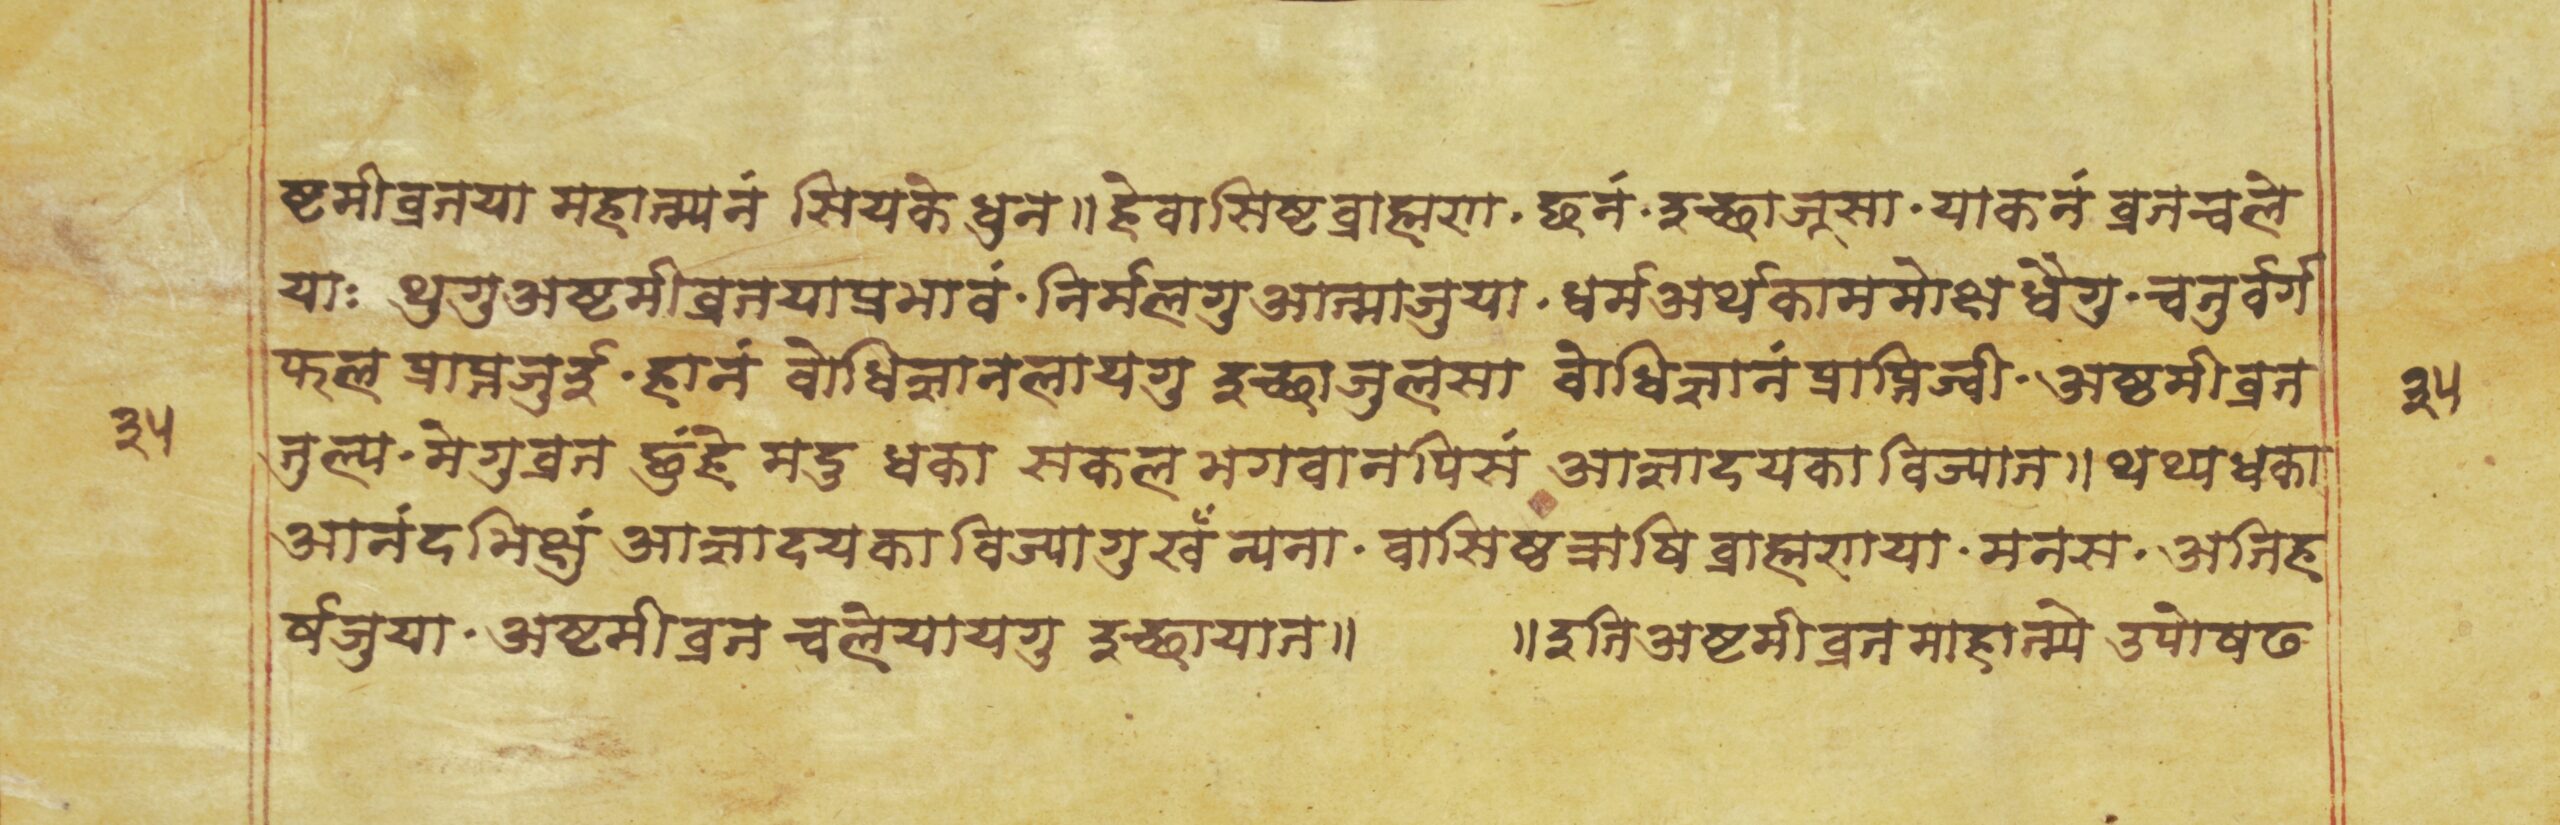 ष्टमीव्रतया महात्म्यनं सियके धुन॥हेवासिष्टब्राह्मण·छनं·इच्छाजूसा·याकनं व्रतचले
याः थुगुअष्टमीव्रतयाप्रभावं·निर्मलगुआत्माजुया·धर्मअर्थकाममोक्ष धैगु·चतुर्वर्ग
फल प्राप्तजुई·हानं बोधिज्ञानलायगु इच्छाजुलसा बोधिज्ञानंप्राप्तिज्वी·अष्ठमीव्रत
तुल्य·मेगुव्रत छुंहे मदु धका सकल भगवानपिसं आज्ञादयका बिज्यात॥थथ्यधका
आनंदभिक्षुं आज्ञादयका बिज्यागुखँ न्यना·वासिष्ठऋषि ब्राह्मणया·मनस·अतिह
र्षजुया·अष्टमीव्रत चलेयायगु इच्छायात॥ ॥इतिअष्टमीव्रतमाहात्म्ये उपोषढ
३५
३५